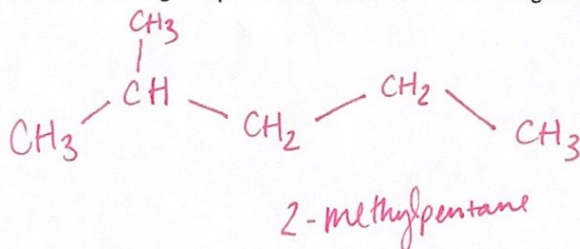 CH3
CH
CH2
CH3
CH2
CH3
2-methylpentane